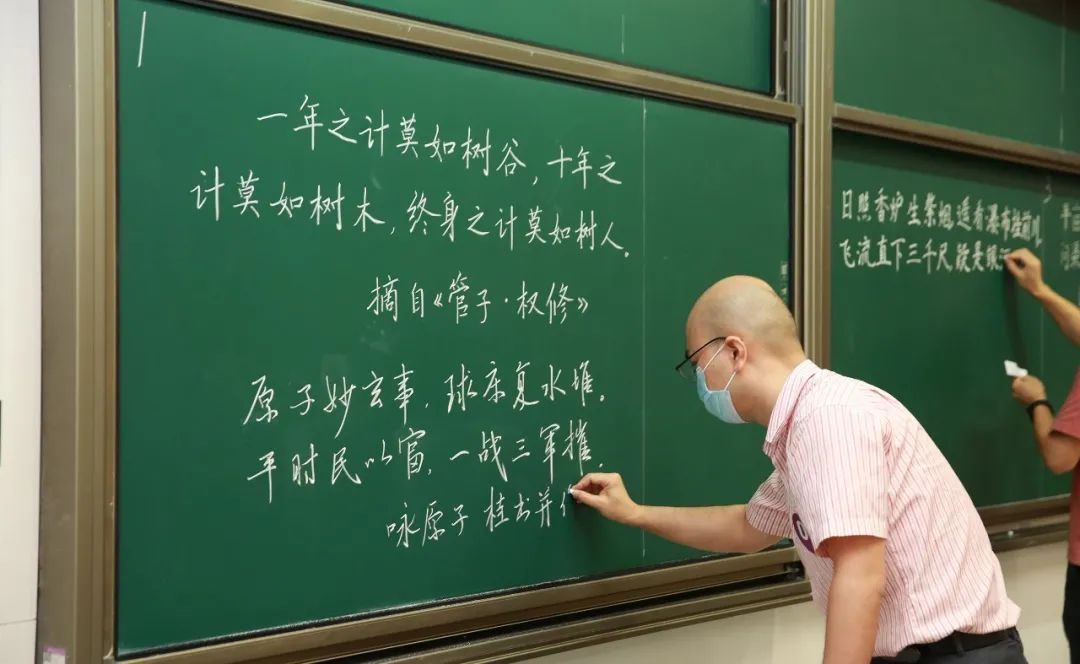 一年之计莫如树谷,十年之
计莫如树木,终身之计莫如树人。
摘自《管子·权修》
原子妙玄事,球床复水堆。
平时民以富,一战三军摧。
咏原子 桂书并
日照香炉生紫烟遥看瀑布挂前川
飞流直下三千尺疑是银河